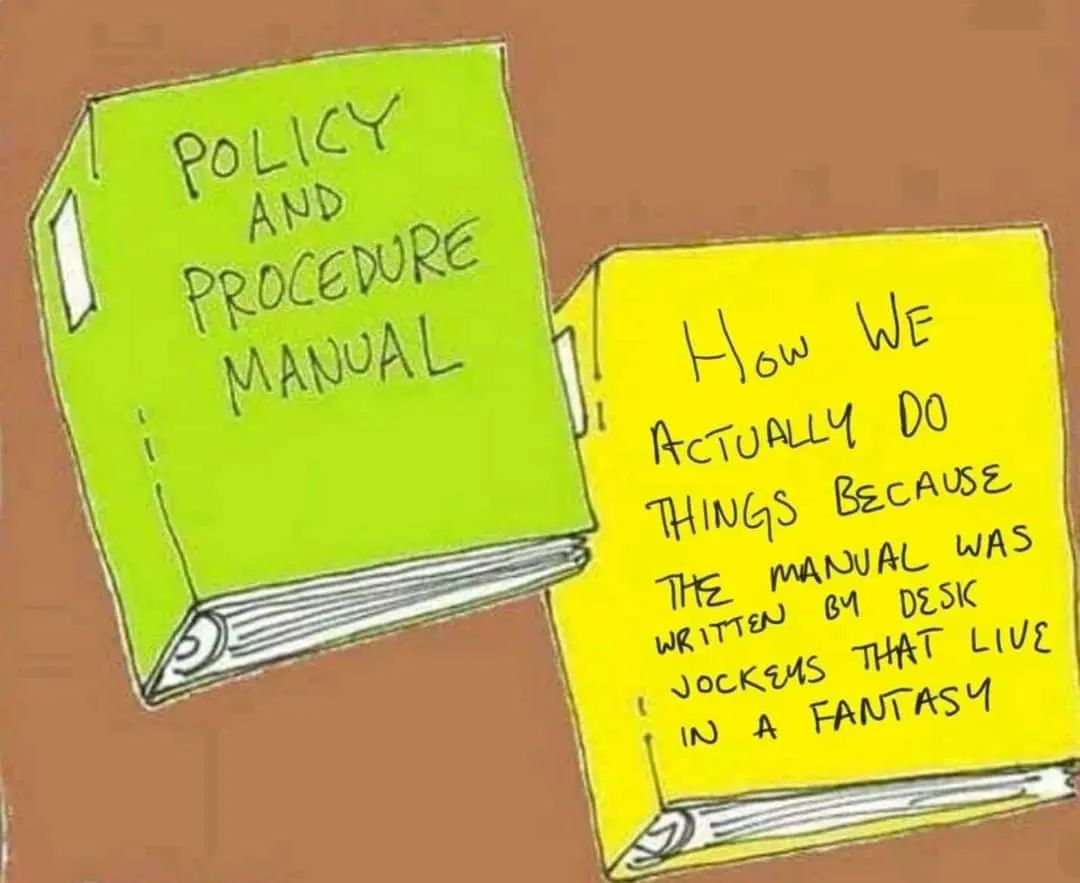 POLICY
AND
PROCEDURE
MANUAL
HOW WE
ACTUALLY DO
THINGS BECAUSE
THE MANUAL WAS
WRITTEN BY DESK
JOCKEYS THAT LIVE
IN A FANTASY